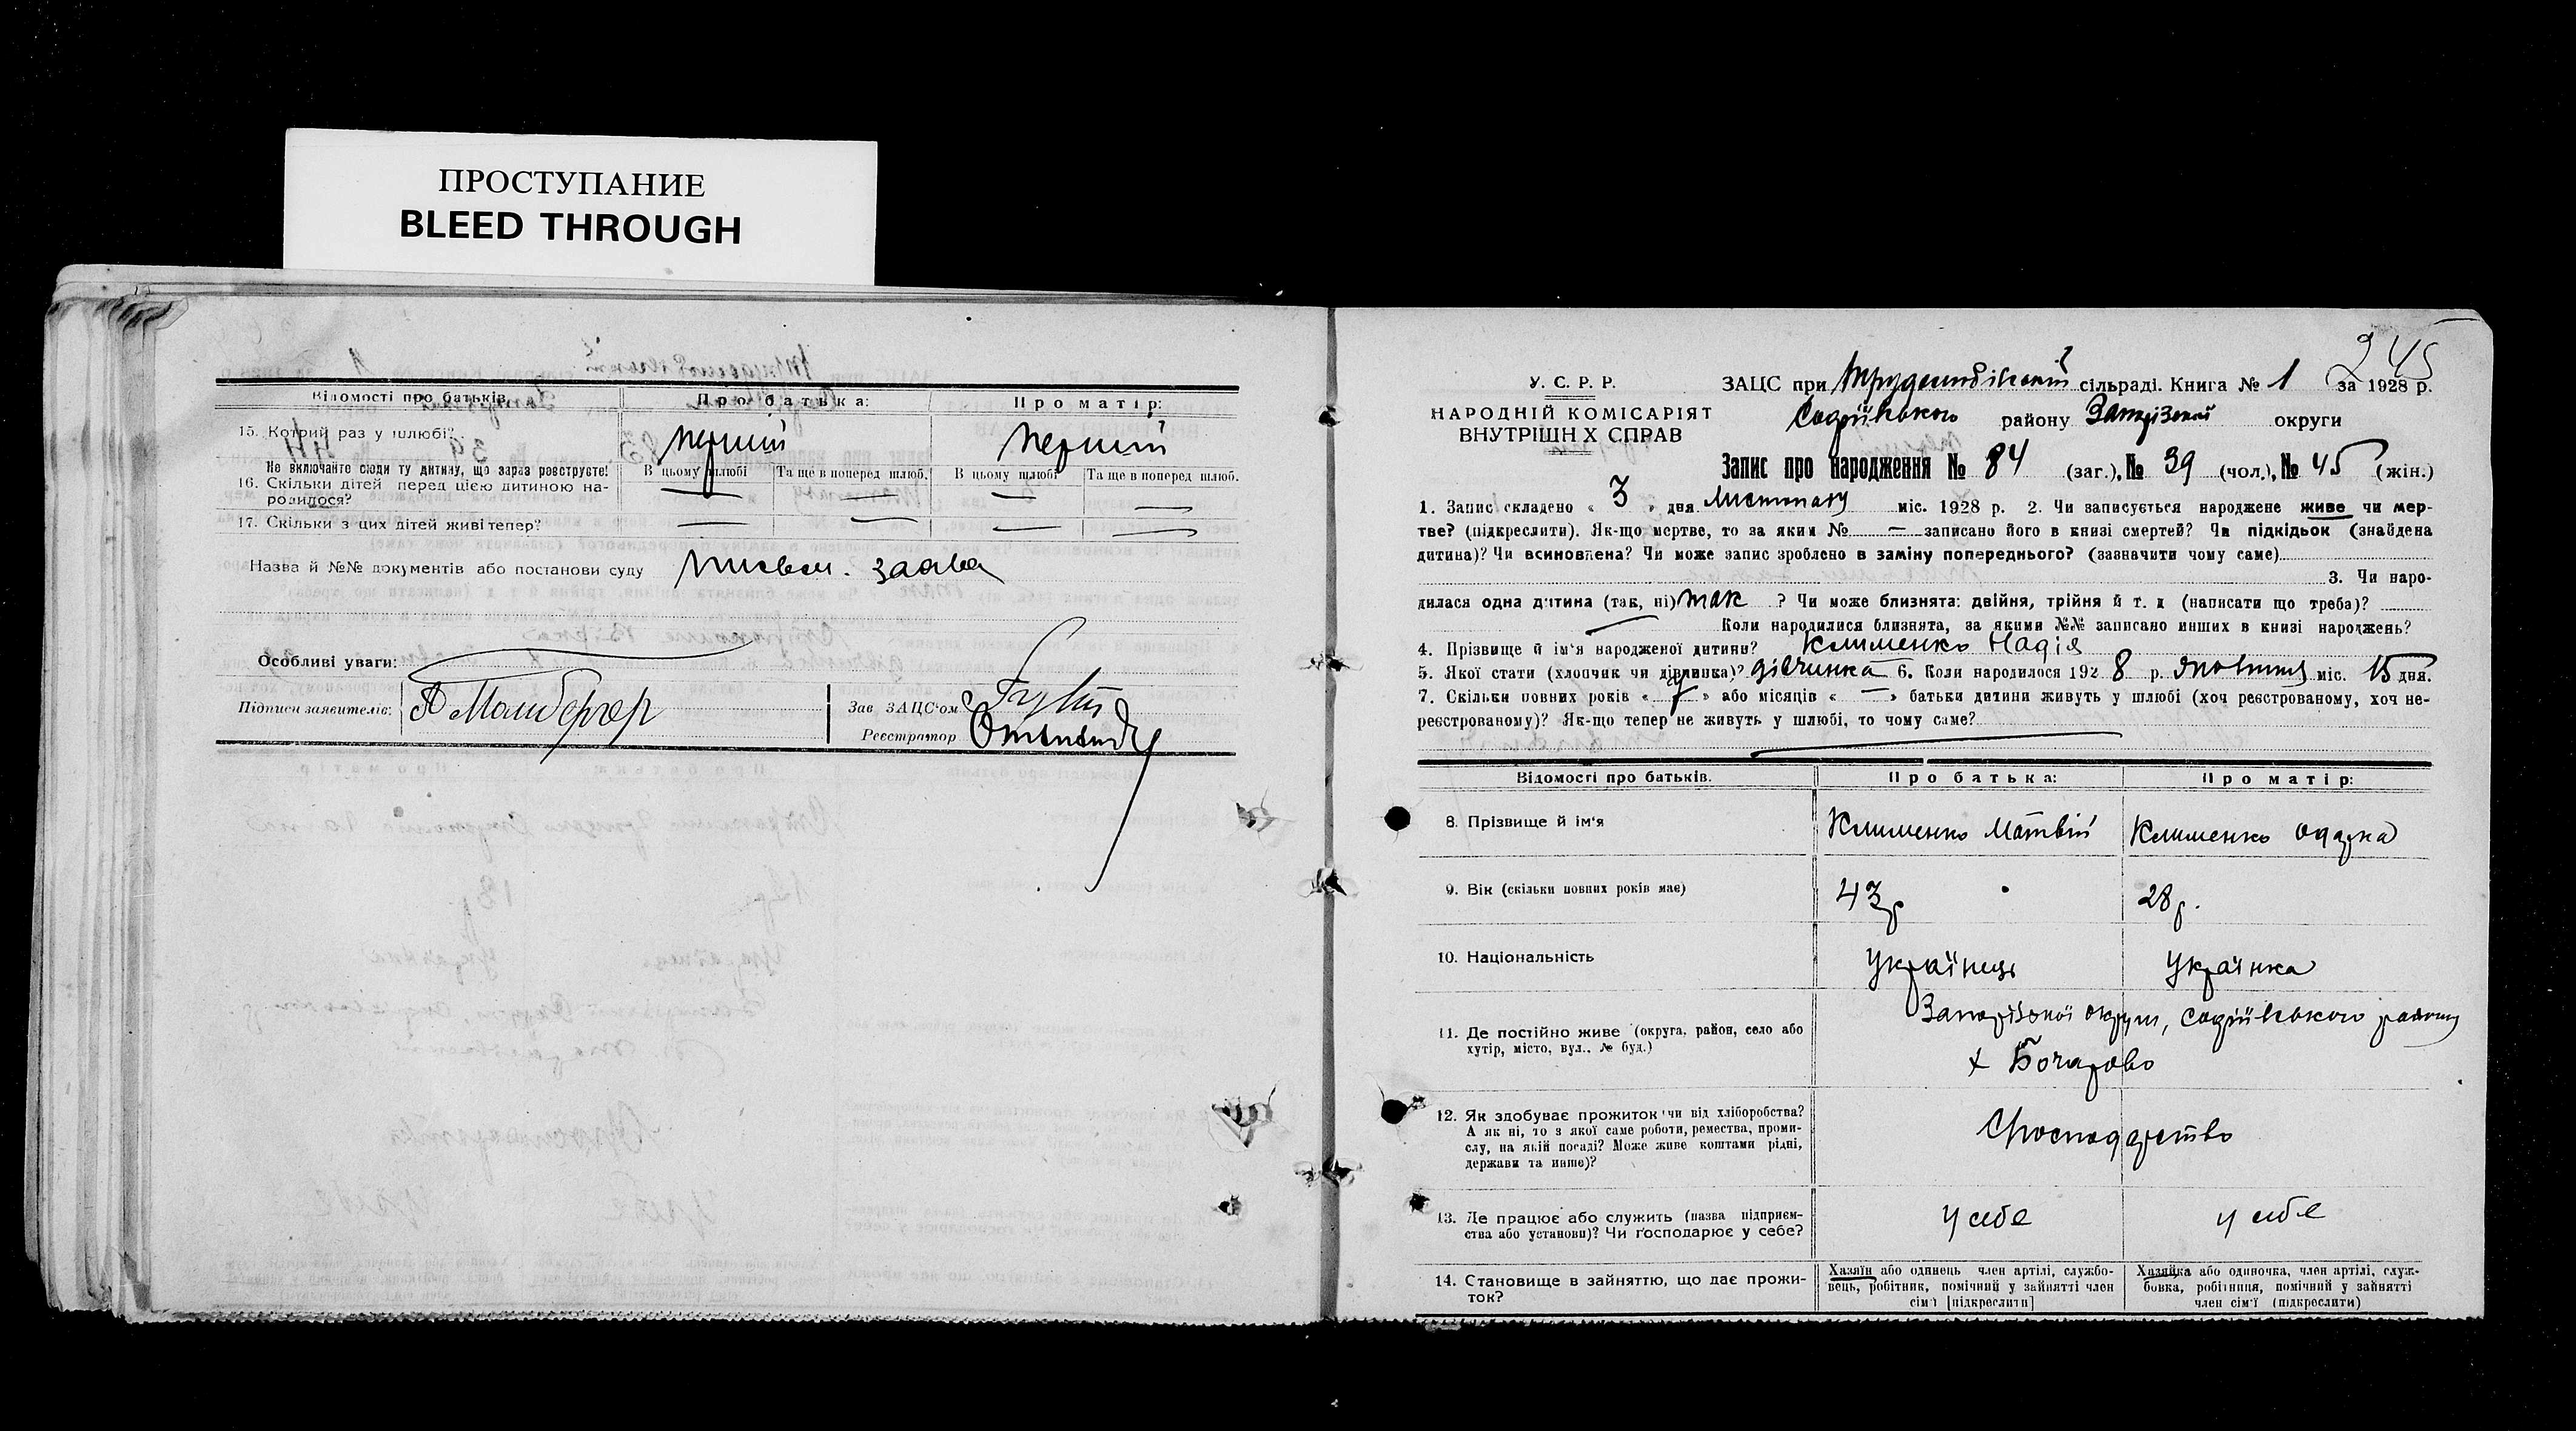 ПРОСТУПАНИЕ
BLEED THROUGH
Відомості про батьків.
Про батька:
Про матір:
15. Котрий раз у шлюбі?
перший
перший
Не включайте сюди ту дитину, що зараз реєструєте!
В цьому шлюбі
Та ще в поперед шлюб.
В цьому шлюбі
Та ще в поперед шлюб.
16. Скільки дітей перед цією дитиною на-
родилося?
— — — —
17. Скільки з цих дітей живі тепер?
— — — —
Назва й №№ документів або постанови суду
заява
Особливі уваги:
Підписи заявителів:
Зав ЗАЦС'ом
Реєстратор
245
У. С. Р. Р.
НАРОДНІЙ КОМІСАРІЯТ
ВНУТРІШН Х СПРАВ
ЗАЦС при сільраді. Книга № 1 за 1928 р.
району округи
Запис про народження № 84 (заг.), № 39 (чол.), № 45 (жін.)
1. Запис складено « 3 » дня листопаду міс. 1928 р. 2. Чи записується народжене живе чи мер-
тве? (підкреслити). Як-що мертве, то за яким № — записано його в книзі смертей? Чи підкідьок (знайдена
дитина)? Чи всиновлена? Чи може запис зроблено в заміну попереднього? (зазначити чому саме)
3. Чи наро-
дилася одна дитина (так, ні) так ? Чи може близнята: двійня, трійня й т. д (написати що треба)?
Коли народилися близнята, за якими №№ записано инших в книзі народжень?
4. Прізвище й ім'я народженої дитини? Клименко Надія
5. Якої стати (хлопчик чи дівчинка)? дівчинка 6. Коли народилося 1928 р. жовтня міс. 15 дня.
7. Скільки повних років « » або місяців « — » батьки дитини живуть у шлюбі (хоч реєстрованому, хоч не-
реєстрованому)? Як-що тепер не живуть у шлюбі, то чому саме?
Відомості про батьків.
Про батька:
Про матір:
8. Прізвище й ім'я
Клименко Матвій
Клименко Одарка
9. Вік (скільки повних років має)
43 р
28 р.
10. Національність
Українець
Українка
11. Де постійно живе (округа, район, село або
хутір, місто, вул., № буд.)
Запорізької округи, району
х Бочарово
12. Як здобуває прожиток чи від хліборобства?
А як ні, то з якої саме роботи, ремества, проми-
слу, на якій посаді? Може живе коштами рідні,
держави та инше)?
Господарство
13. Де працює або служить (назва підприєм-
ства або установи)? Чи господарює у себе?
у себе
у себе
14. Становище в зайняттю, що дає прожи-
ток?
Хазяїн або одинець член артілі, службо-
вець, робітник, помічний у зайнятті член
сім'ї [підкреслити]
Хазяйка або одиночка, член артілі, служ-
бовка, робітниця, помічний у зайнятті
член сім'ї (підкреслити)